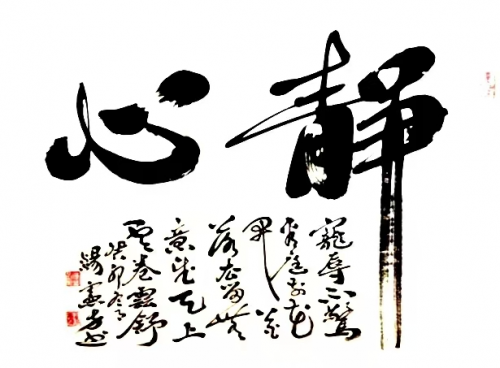 静心
寵辱不驚
看庭前花
開花
落去留無
意望天上
雲卷雲舒
癸卯冬